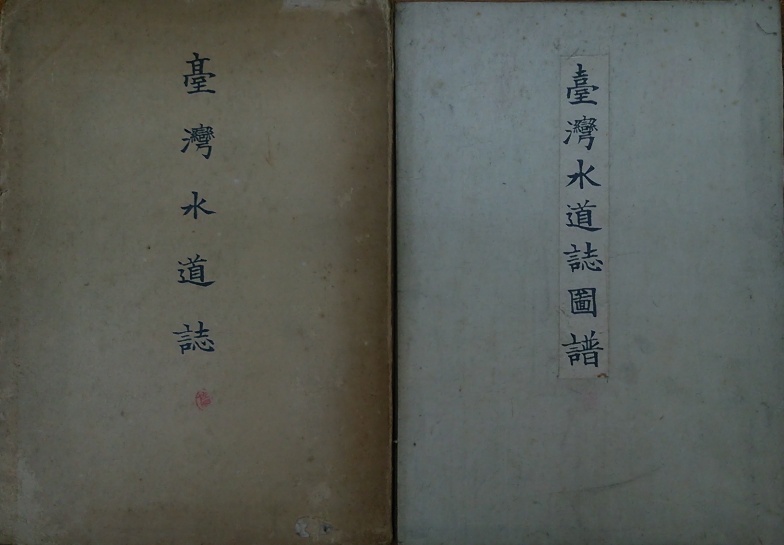 臺灣水道誌
臺灣水道誌圖譜